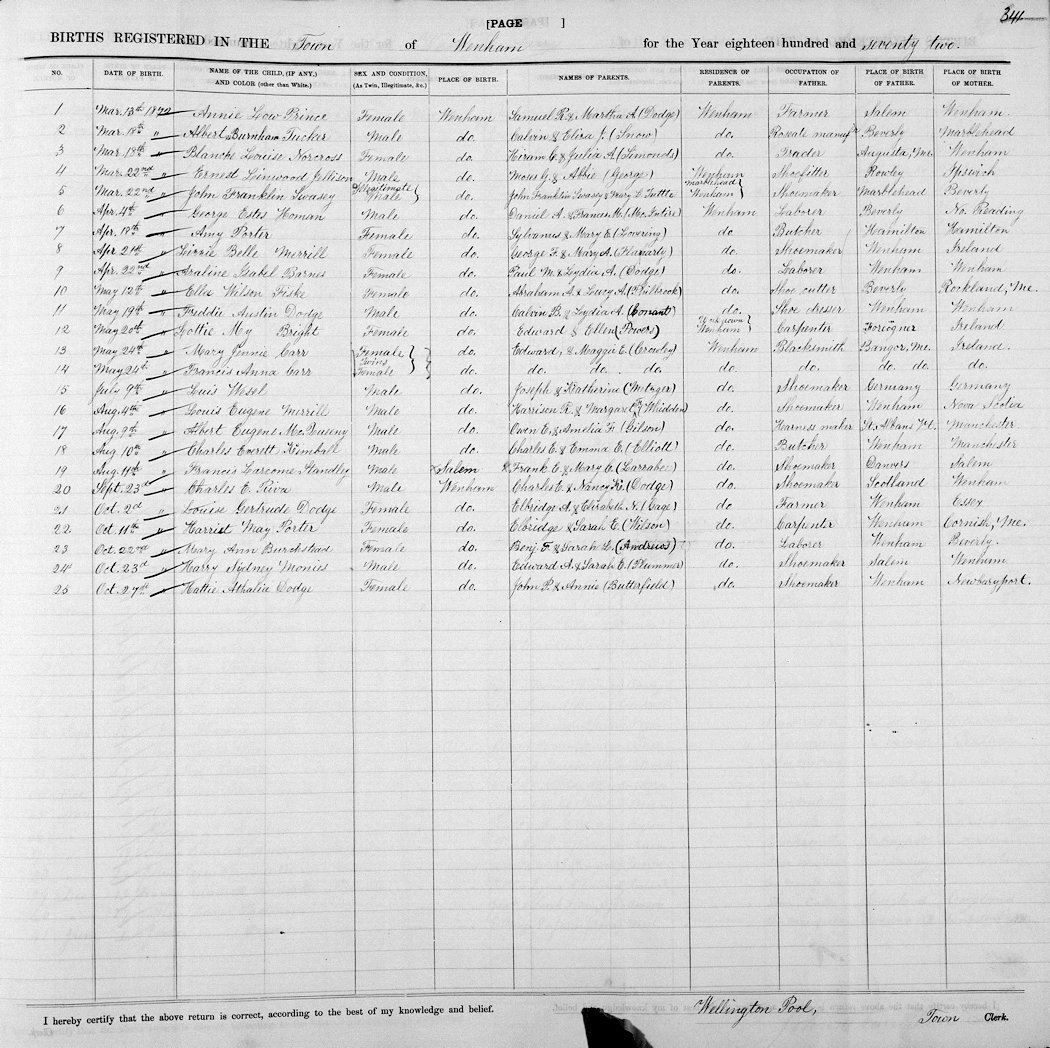 [PAGE ] 341
BIRTHS REGISTERED IN THE Town of Wenham for the Year eighteen hundred and seventy two.
NO. DATE OF BIRTH. NAME OF THE CHILD, (IF ANY.) AND COLOR (other than White.) SEX AND CONDITION, (As Twin, Illegitimate, &c.) PLACE OF BIRTH. NAMES OF PARENTS. RESIDENCE OF PARENTS. OCCUPATION OF FATHER. PLACE OF BIRTH OF FATHER. PLACE OF BIRTH OF MOTHER.
1 Mar. 13th 1872 Annie Prince Female Wenham Samuel R. & Martha A. (Dodge) Wenham Farmer Salem Wenham.
2 Mar. 18th " Albert Burnham Tucker Male do. Calvin & Eliza J. (Snow) do. manuf Beverly Marblehead
3 Mar. 18th " Blanche Louise Norcross Female do. Hiram C. & Julia A. (Simonds) do. Trader Augusta, Me. Wenham
4 Mar. 22nd " Ernest Linwood Jellison Male do. Moses G. & Abbie (George) Wenham Shoefitter Rowley Ipswich
5 Mar. 22nd " John Franklin Swasey Illegitimate Male do. John Franklin Swasey & Mary L. Tuttle Marblehead Wenham Shoemaker Marblehead Beverly
6 Apr. 4th " George Estes Homan Male do. Daniel A. & Frances M. (Mc.Intire) Wenham Laborer Beverly No. Reading
7 Apr. 18th " Amy Porter Female do. Sylvanus & Mary E. (Lovering) do. Butcher Hamilton Hamilton
8 Apr. 21st " Lizzie Belle Merrill Female do. George F. & Mary A. do. Shoemaker Wenham Ireland
9 Apr. 22nd " Isabel Barnes Female do. Paul M. & Lydia A. (Dodge) do. Laborer Wenham Wenham
10 May 12th " Ella Wilson Fiske Female do. Abraham A. & Lucy A. (Philbrook) do. Shoe cutter Beverly Rockland, Me.
11 May 19th " Freddie Austin Dodge Male do. Calvin B. & Lydia A. (Conant) do. Shoe dresser Wenham Wenham
12 May 20th " Lottie My Bright Female do. Edward & Ellen (Powers) Unknown Wenham Carpenter Foreigner Ireland
13 May 24th " Mary Jennie Carr Female do. Edward, & Maggie E. (Crowley) Wenham Blacksmith Bangor, Me. Ireland.
14 May 24th " Francis Anna Carr Twins Female do. do. do. do. do. do. do. do. do.
15 July 9th " Luis Wesel Male do. Joseph & Katherine (Metzger) do. Shoemaker Germany Germany
16 Aug. 4th " Louis Eugene Merrill Male do. Harrison R. & Margaret (Whidden) do. Shoemaker Wenham Nova Scotia
17 Aug. 9th " Albert Eugene Male do. Owen E. & Amelia F. (Gilson) do. Harness maker St. Albans Vt. Manchester.
18 Aug. 10th " Charles Everett Kimball Male do. Charles E. & Emma E. (Elliott) do. Butcher Wenham Manchester
19 Aug. 11th " Francis Larcome Standley Male Salem Frank E. & Mary E. (Larrabee) do. Shoemaker Danvers Salem
20 Sept. 23d " Charles E. Riva Male Wenham Charles E. & Nancy K. (Dodge) do. Shoemaker Scotland Wenham
21 Oct. 2d " Louise Gertrude Dodge Female do. Elbridge A. & Elizabeth N. (Gage) do. Farmer Wenham Essex
22 Oct. 11th " Harriet May Porter Female do. Elbridge & Sarah E. (Wilson) do. Carpenter Wenham Cornish, Me.
23 Oct. 22nd " Mary Ann Burchstead Female do. Benj. F. & Sarah L. (Andrews) do. Laborer Wenham Beverly.
24 Oct. 23d " Harry Sydney Monies Male do. Edward A. & Sarah E. (Plummer) do. Shoemaker Salem Wenham
25 Oct. 27th " Hattie Athalia Dodge Female do. John P. & Annie (Butterfield) do. Shoemaker Wenham Newburyport.
I hereby certify that the above return is correct, according to the best of my knowledge and belief. Wellington Pool, Town Clerk.